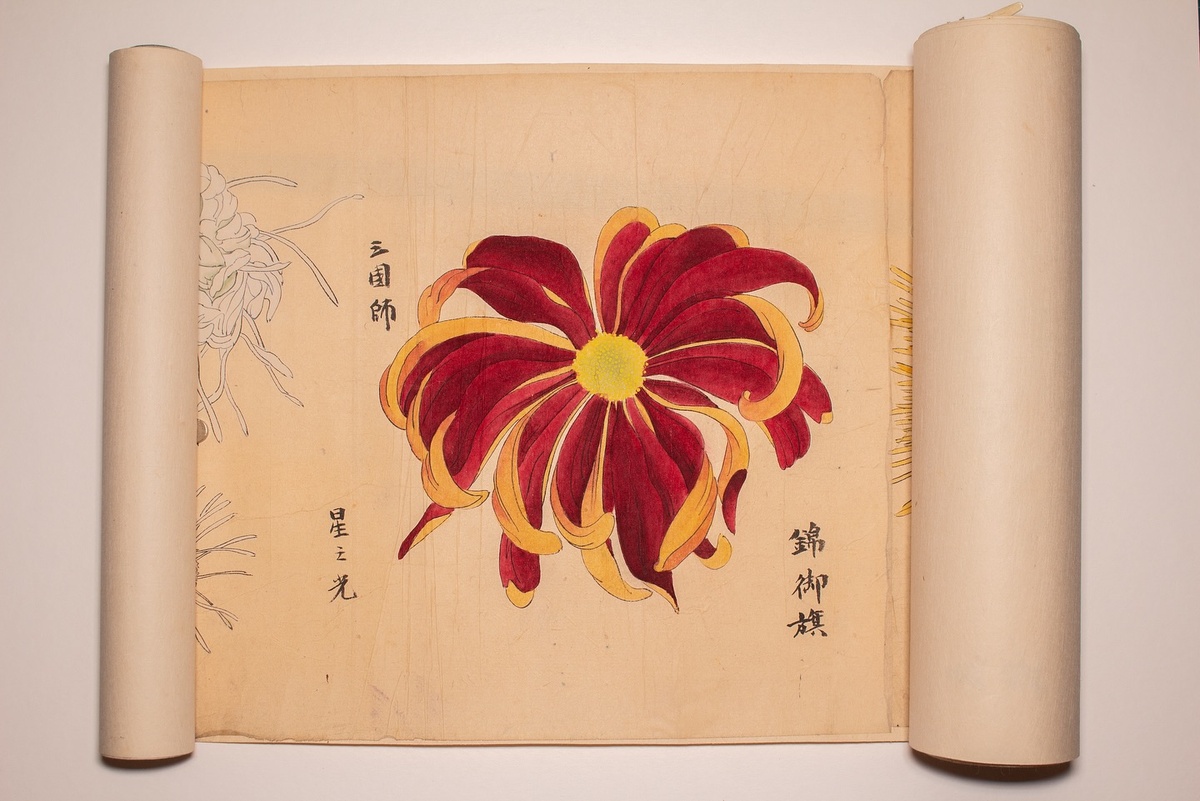 錦御旗
三国師
星之光